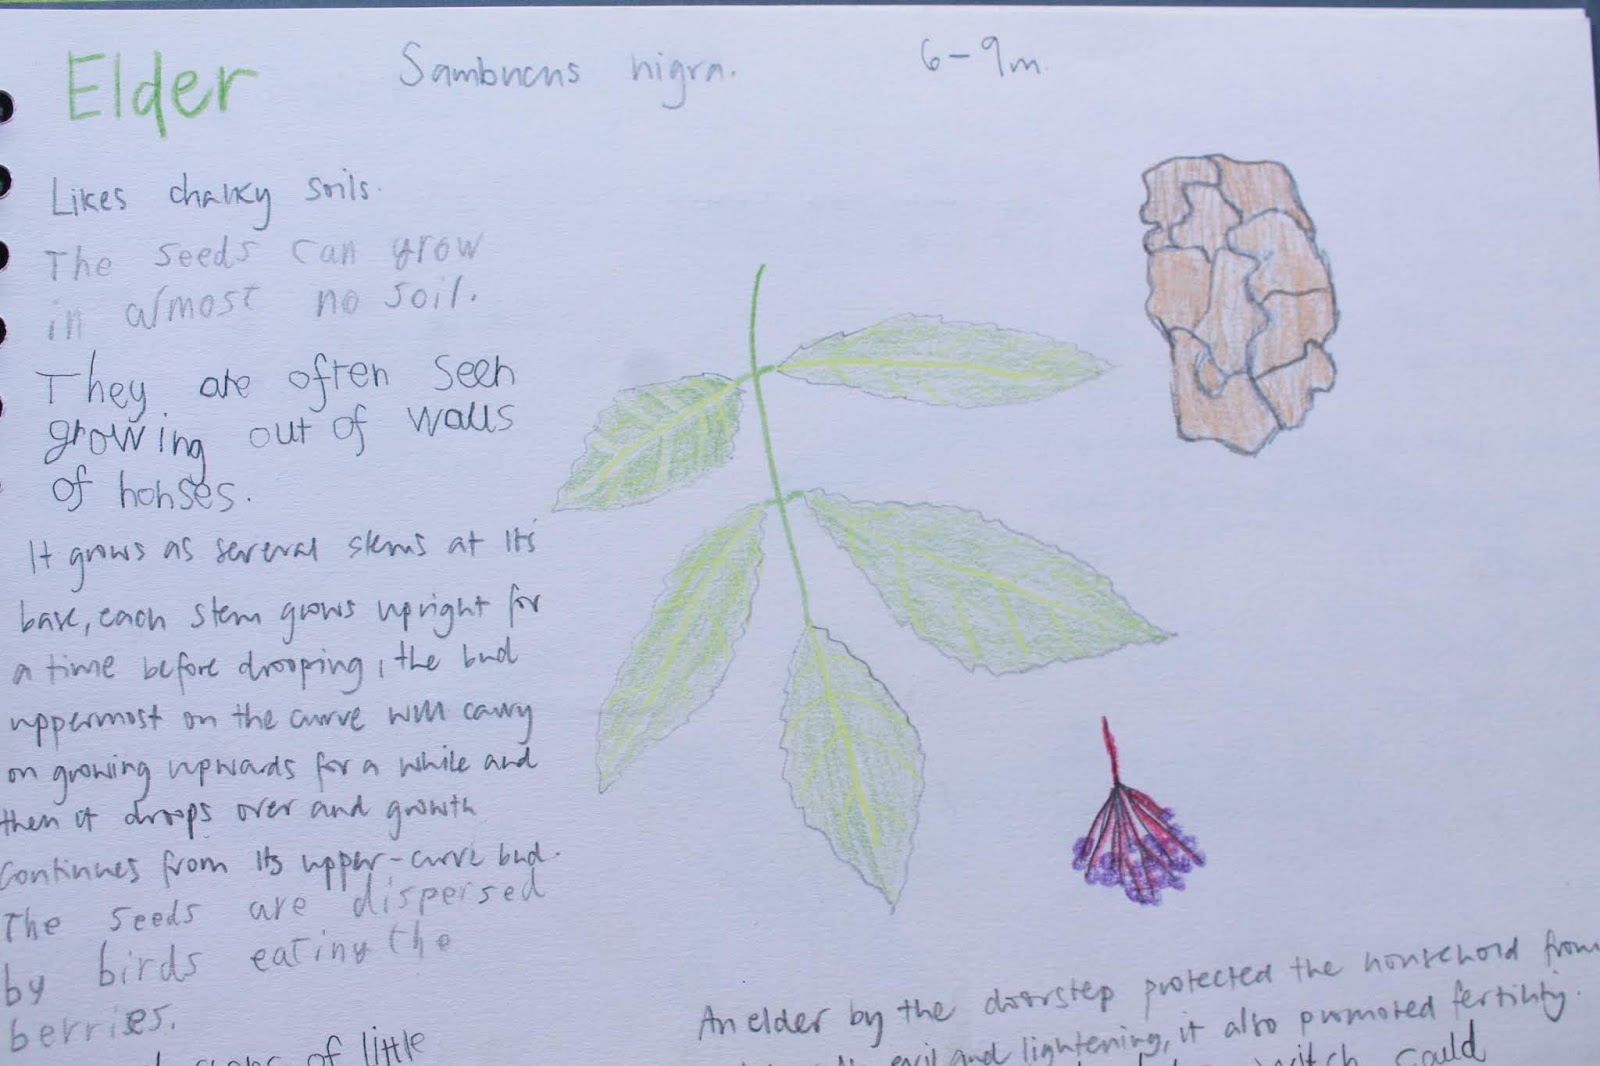 Elder
Sambucus nigra.
6-9m.
Likes chalky soils.
The seeds can grow
in almost no soil.
They are often seen
growing out of walls
of houses.
It grows as several stems at it's
base, each stem grows upright for
a time before drooping, the bud
uppermost on the curve will carry
on growing upwards for a while and
then it droops over and growth
continues from its upper-curve bud.
The seeds are dispersed
by birds eating the
berries.
of little
An elder by the doorstep protected the household from
evil and lightening, it also promoted fertility.
witch could